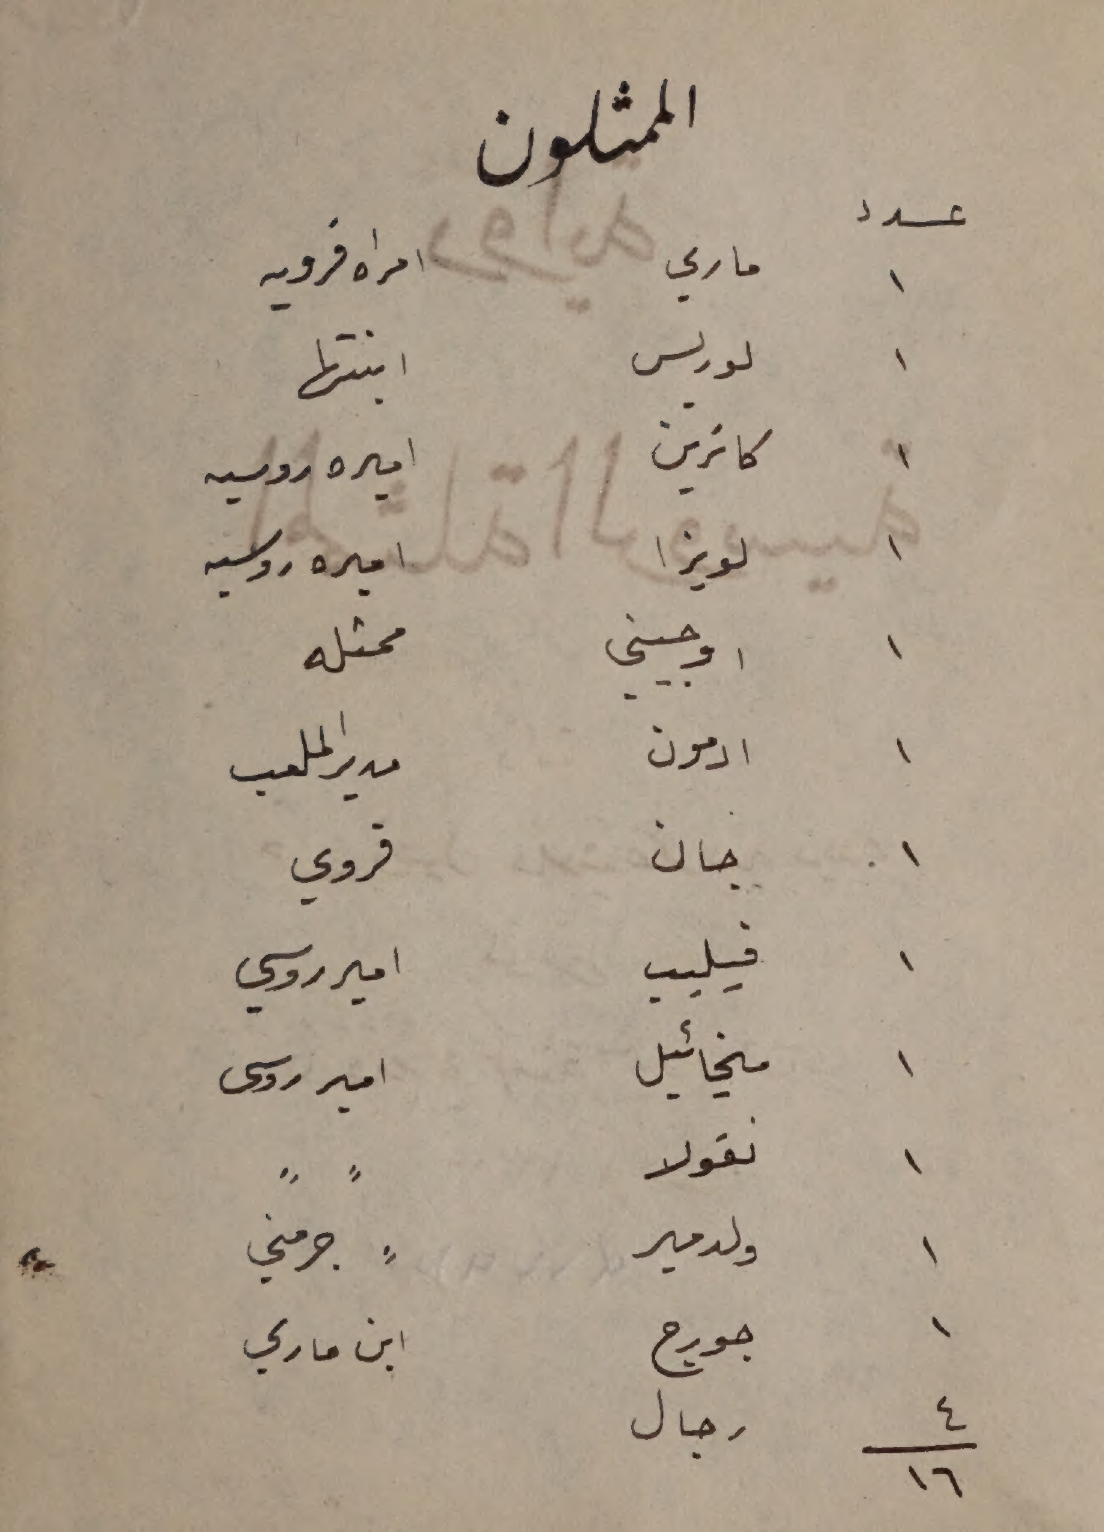 الممثلون
عدد
١ ماري امراه قرويه
١ لوريس ابنتها
١ كاترين اميره روسيه
١ لويزا اميره روسيه
١ اوجيني ممثله
١ ادمون مدير الملعب
١ جان قروي
١ فيليب امير روسي
١ ميخائيل امير روسى
١ نقولا " "
١ ولدمير " جرمني
١ جورج ابن ماري
٤ رجال
١٦